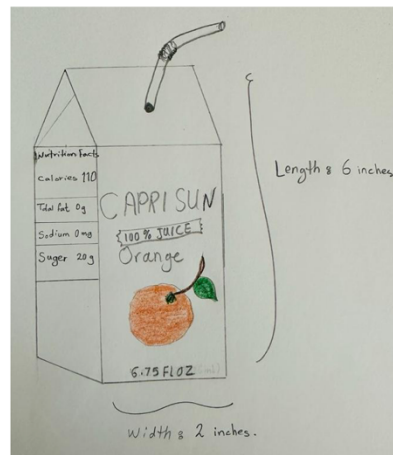 Nutrition Facts
Calories 110
Total fat 0g
Sodium 0mg
Suger 20g
CAPRI SUN
100% JUICE
Orange
6.75 FL OZ
Length: 6 inches
Width: 2 inches.